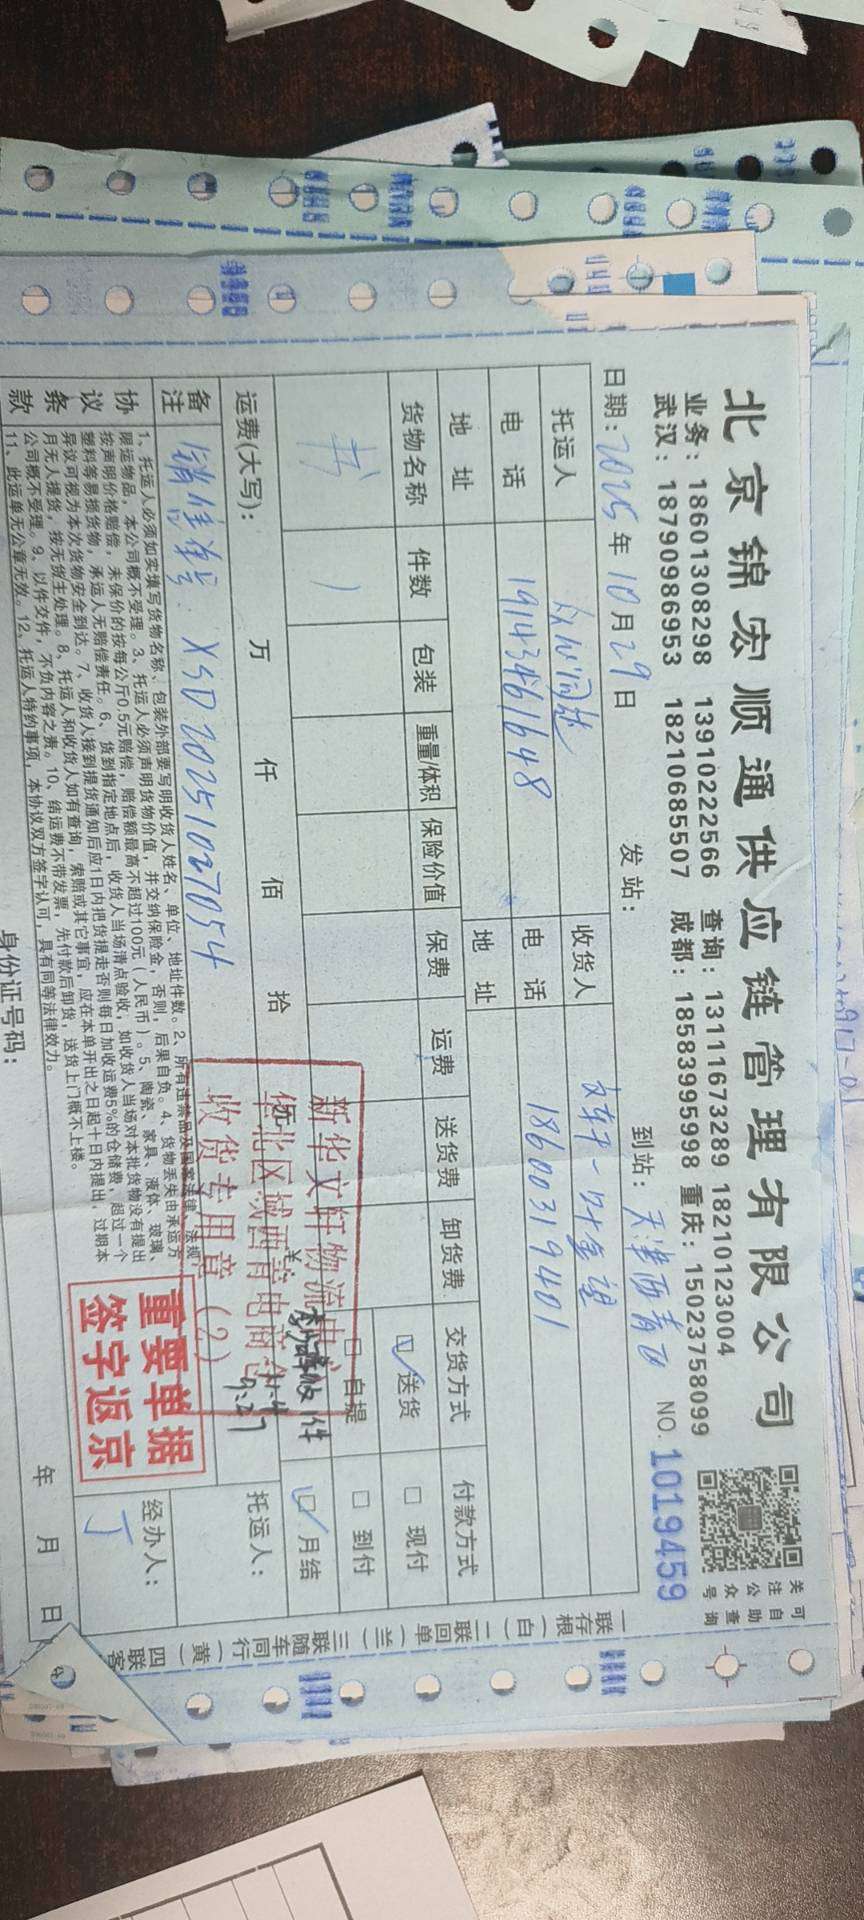 北京锦宏顺通供应链管理有限公司
业务：18601308298 13910222566 查询：13111673289 18210123004
武汉：18790986953 18210685507 成都：18583995998 重庆：15023758099
关注公众号
可自助查询
日期：2025年10月29日 发站： 到站：天津西青区 NO.1019459
托运人 收货人 文轩一叶金望
电话 19143461648 电话 18600319401
地址 地址
货物名称 件数 包装 重量/体积 保险价值 保费 运费 送货费 卸货费 交货方式 付款方式
书 1 送货 现付
自提 到付
月结
运费(大写)： 万 仟 佰 拾 托运人：
备注 销售单号 XSD20251027054
新华文轩物流
华北区域西青电商仓
收货专用章(2)
实收1件
9:27
重要单据
签字返京
经办人：
丁
协议条款
1、托运人必须如实填写货物名称、包装外部要写明收货人姓名、单位、地址件数。2、所有违禁品及国家法律、法规
限运物品，本公司概不受理。3、托运人必须声明货物价值，并交纳保险金，否则，后果自负。4、货物丢失由承运方
按声明价格赔偿，未保价的按每公斤0.5元赔偿，赔偿额最高不超过100元（人民币）。5、陶瓷、家具、液体、玻璃、
塑料等易损货物，承运人无赔偿责任。6、货到指定地点后，收货人当场清点验收，如收货人当场对本批货物没有提出
异议可视为本次货物安全到达。7、收货人接到提货通知后应1日内把货提走否则每日加收运费5%的仓储费，超过一个
月无人提货，按无货主处理。8、托运人和收货人如有查询，索赔或其它事宜，应在本单开出之日起十日内提出，过期本
公司概不受理。9、以件交件，不负内容之责。10、结运费不带发票，先付款后卸货，送货上门概不上楼。
11、此运单无公章无效。12、托运人特约事项，本协议双方签字认可，具有同等法律效力。
身份证号码： 年 月 日
一联存根（白） 二联回单（兰） 三联随车同行（黄） 四联客